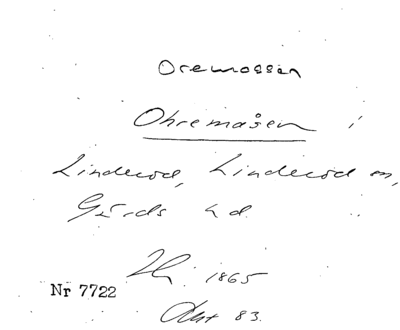 Oremossen
Ohremåsen i
Linderöd, Linderöd sn,
Gärds hd.
1865
Nr 7722
83.